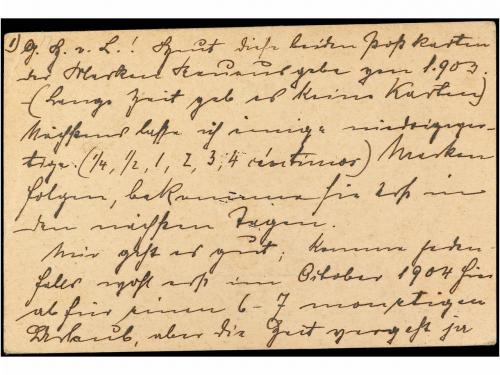 1) G. H. v. L.! Heut diese beiden Postkarten
der Marken Neuausgabe von 1.903.
(Lange Zeit gab es keine Karten)
Nächstens lasse ich einige
(1/4, 1/2, 1, 2, 3, 4 céntimos) Marken
folgen, bekomme sie erst in
den nächsten Tagen.
Mir geht es gut; komme jeden
falls wohl erst im October 1904 hier
ab für einen 6-7 monatigen
Urlaub, aber die Zeit vergeht ja